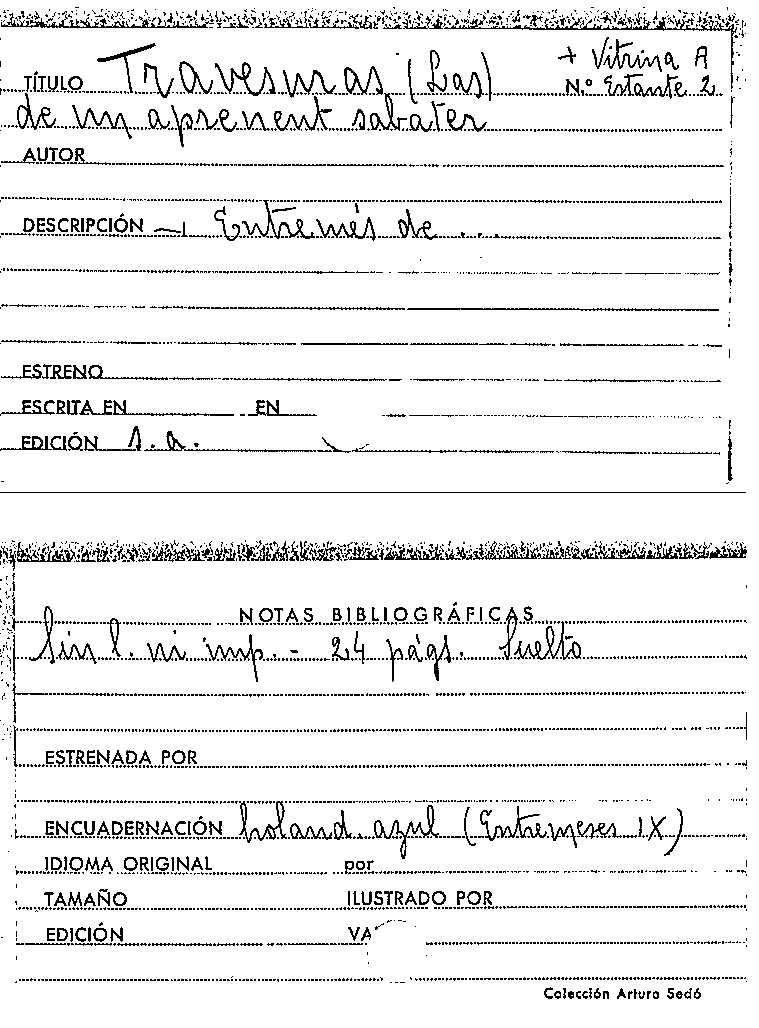 + Vitrina A
TÍTULO Travesuras (Las) N.º Estante 2
de un aprenent sabater
AUTOR
DESCRIPCIÓN — Entremés de ...
ESTRENO
ESCRITA EN EN
EDICIÓN s.a.
NOTAS BIBLIOGRÁFICAS
Sin l. ni imp. - 24 págs. Suelto
ESTRENADA POR
ENCUADERNACIÓN holand. azul (Entremeses IX)
IDIOMA ORIGINAL por
TAMAÑO ILUSTRADO POR
EDICIÓN VA
Colección Arturo Sedó